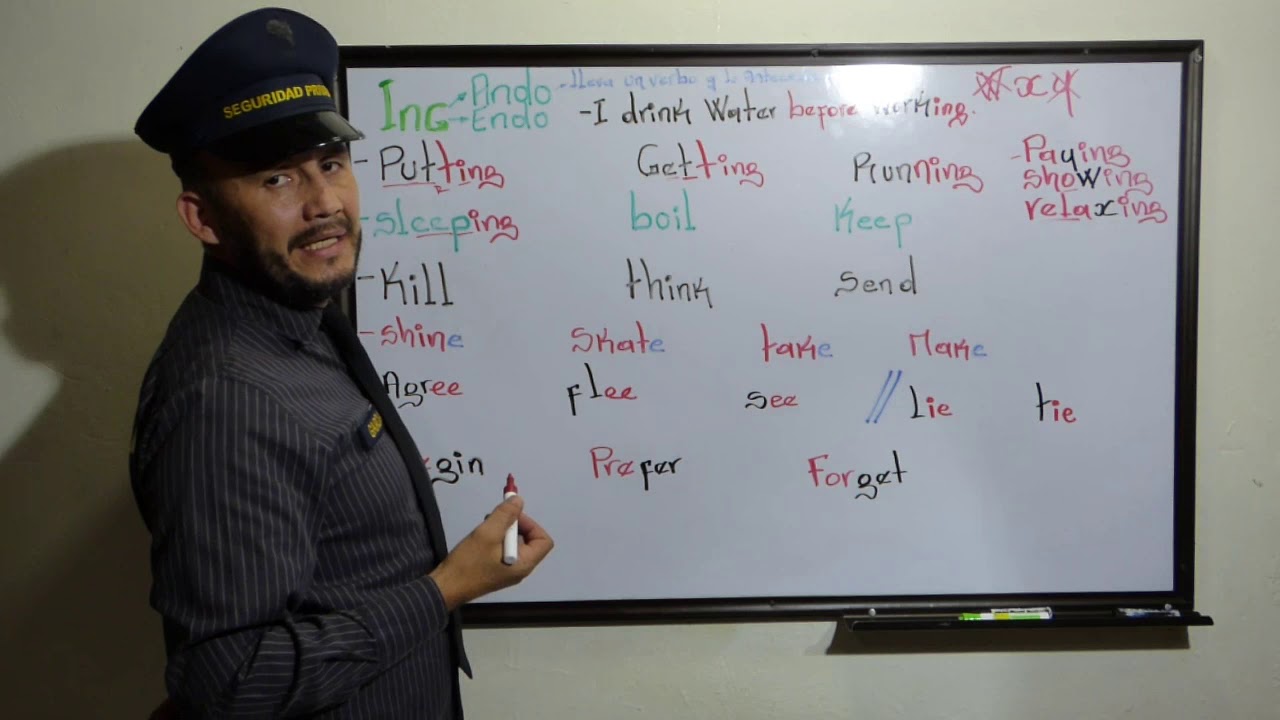 SEGURIDAD
Ing Ando - lleva un verbo y lo
Endo - I drink Water before working.
- Putting Getting Running - Paying
showing
relaxing
- sleeping boil Keep
- Kill think Send
- shine Skate take Make
Agree flee see // Lie tie
gin Prefer Forget